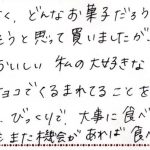 く、どんなお菓子だろう
ちうと思って買いましたが、
おいしい 私の大好きな
チョコでくるまれてることを
、びっくりで、大事に食べ
もまた機会があれば 食べ